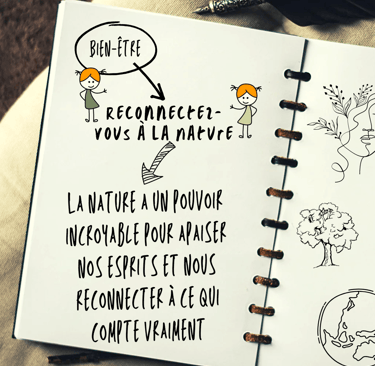 BIEN-ÊTRE
RECONNECTEZ-
VOUS À LA NATURE
LA NATURE A UN POUVOIR
INCROYABLE POUR APAISER
NOS ESPRITS ET NOUS
RECONNECTER À CE QUI
COMPTE VRAIMENT